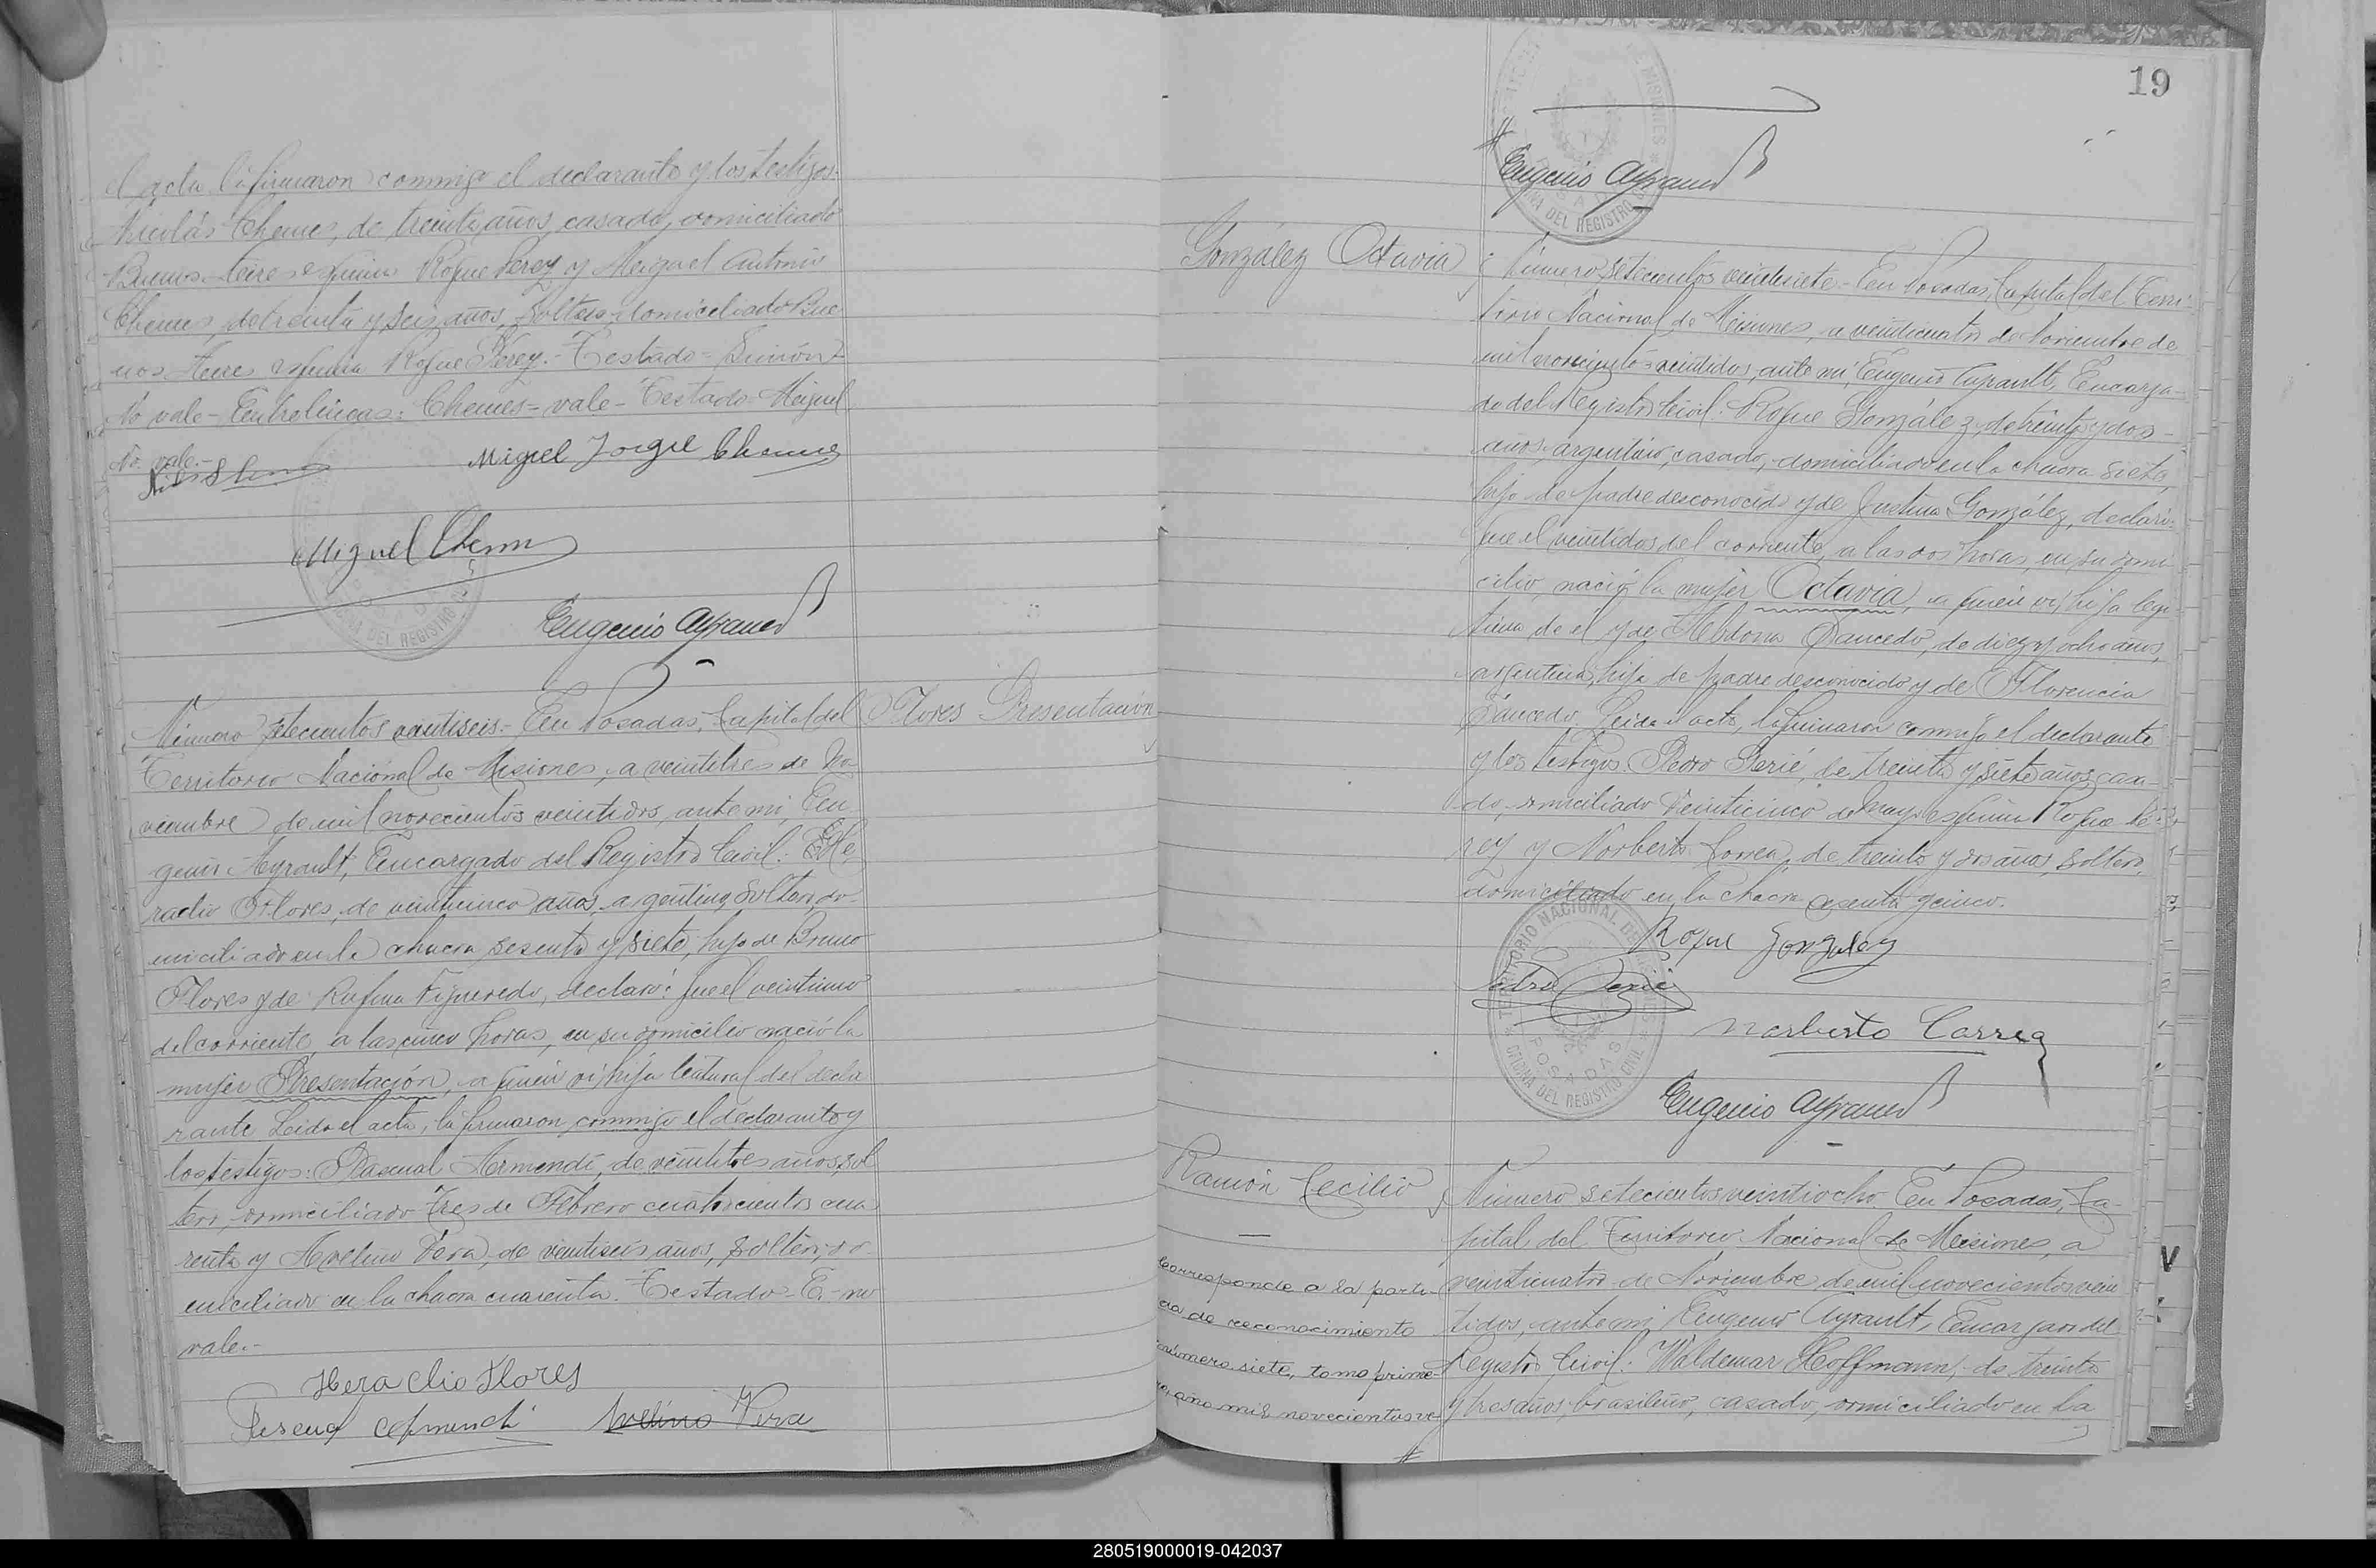 el acta la firmaron conmigo el declarante y los testigos:
Nicolás Chemes, de treinta años, casado, domiciliado
Buenos Aires esquina Roque Perez y Miguel Antonio
Chemes, de treinta y seis años, soltero, domiciliado Bue
nos Aires esquina Roque Perez.- Testado = Simón =
No vale - Entrelíneas: Chemes = vale - Testado Miguel
No vale.-
Miguel Jorge Chemes
Miguel Chem
Eugenio Ayrault
Flores Presentación
Número setecientos veintiseis.- En Posadas, Capital del
Territorio Nacional de Misiones, a veintitres de No
viembre de mil novecientos veintidos, ante mi, Eu
genio Ayrault, Encargado del Registro Civil: He
raclio Flores, de veinticinco años, argentino, soltero, do-
miciliado en la chacra sesenta y siete, hijo de Bruno
Flores y de Rufina Figueredo, declaró: que el veintiuno
del corriente, a las cinco horas, en su domicilio nació la
mujer Presentación, a quien vi, hija natural del decla
rante. Leida el acta, la firmaron conmigo el declarante y
los testigos: Pascual Armendi, de veintitres años, sol
tero, domiciliado Tres de Febrero cuatrocientos cua
renta y Avelino Vera, de veintiseis años, soltero, do
miciliado en la chacra cuarenta. Testado - E. - no
vale.-
Heraclio Flores
Avelino Vera
19
Eugenio Ayrault
OFICINA DEL REGISTRO CIVIL
González Octavia
Número setecientos veintisiete.- En Posadas, Capital del Terri-
torio Nacional de Misiones, a veinticuatro de Noviembre de
mil novecientos veintidos, ante mi, Eugenio Ayrault, Encarga-
do del Registro Civil: Roque González, de treinta y dos
años, argentino, casado, domiciliado en la chacra siete,
hijo de padre desconocido y de Justina González, declaró:
que el veintidos del corriente, a las dos horas, en su domi
cilio, nació la mujer Octavia, a quien vi, hija legi
tima de él y de Saucedo, de diez y ocho años,
argentina, hija de padre desconocido y de Florencia
Saucedo. Leida el acta, la firmaron conmigo el declarante
y los testigos: Pedro Serié, de treinta y siete años, casa-
do, domiciliado Veinticinco de Mayo esquina Roque Pé-
rez y Norberto Correa, de treinta y dos años, soltero,
domiciliado en la chacra sesenta y cinco.
Roque Gonzalez
Pedro Serié
Norberto Correa
Eugenio Ayrault
TERRITORIO NACIONAL DE MISIONES
POSADAS
OFICINA DEL REGISTRO CIVIL
Ramón Cecilio
Corresponde a la parti-
da de reconocimiento
número siete, tomo prime-
ro, año mil novecientos ve
Número setecientos veintiocho. En Posadas, Ca-
pital del Territorio Nacional de Misiones, a
veinticuatro de Noviembre de mil novecientos vein
tidos, ante mi, Eugenio Ayrault, Encargado del
Registro Civil: Waldemar Hoffmann, de treinta
y tres años, brasileño, casado, domiciliado en la
280519000019-042037